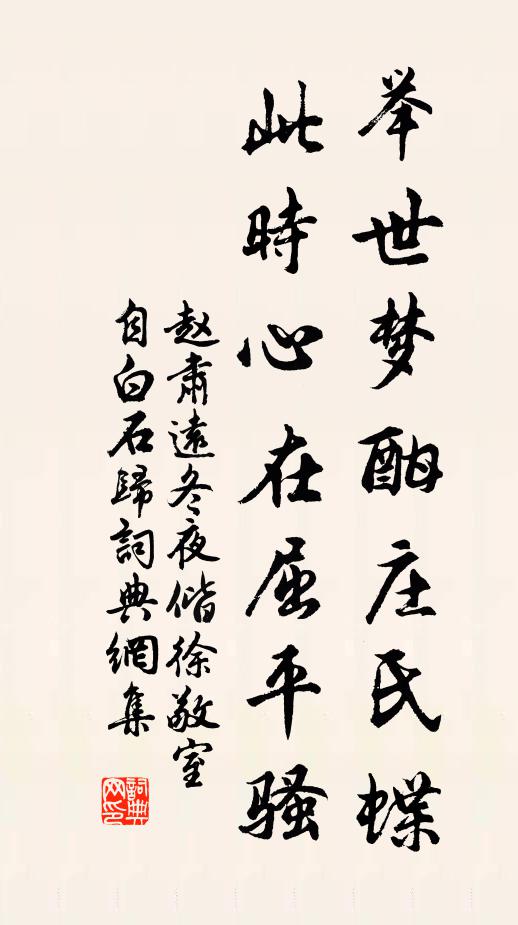 举世梦酣庄氏蝶
此時心在屈平骚
赵肃遠冬夜偕徐敬室
自白石歸詞典網集
詞典
网印